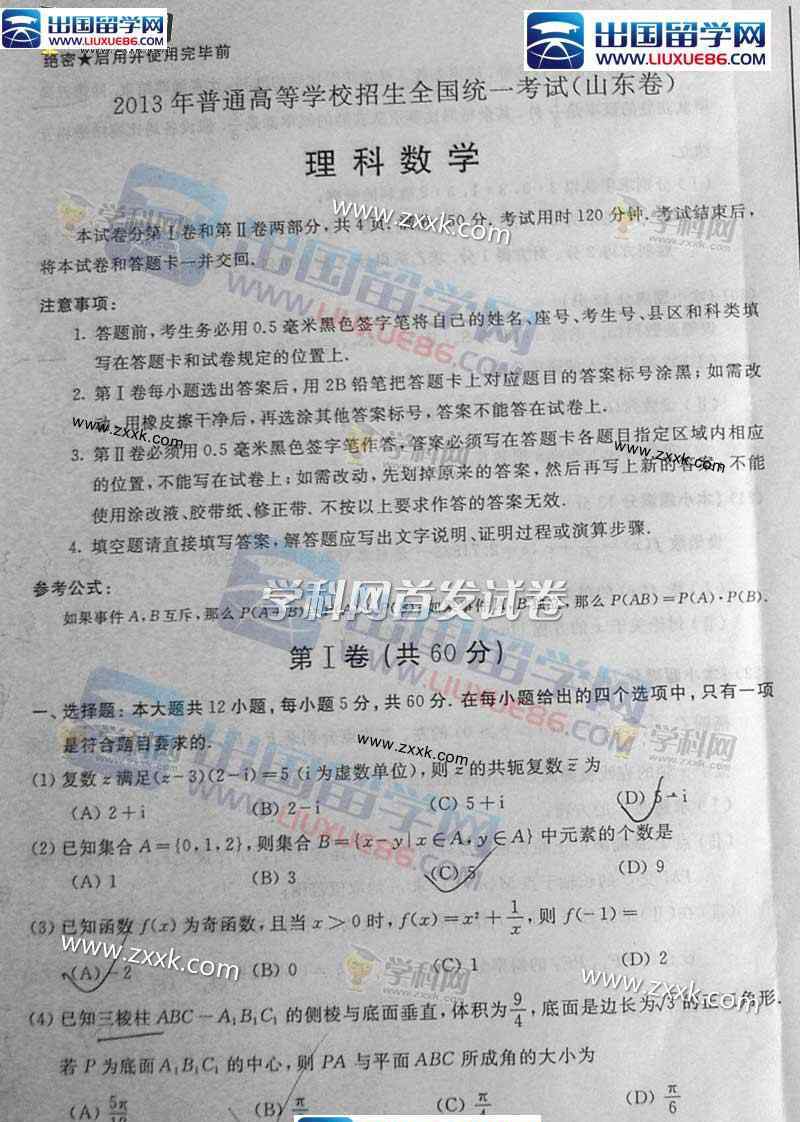 出国留学网
WWW.LIUXUE86.COM
出国留学网
www.LIUXUE86.COM
绝密★启用并使用完毕前
2013年普通高等学校招生全国统一考试(山东卷)
理科数学
www.zxxk.com
学科网
学科网
本试卷分第Ⅰ卷和第Ⅱ卷两部分,共4页.50分.考试用时120分钟.考试结束后,
将本试卷和答题卡一并交回.
出国留学网
LIUXUE86.COM
注意事项:
1. 答题前,考生务必用0.5毫米黑色签字笔将自己的姓名、座号、考生号、县区和科类填
写在答题卡和试卷规定的位置上.
2. 第Ⅰ卷每小题选出答案后,用2B铅笔把答题卡上对应题目的答案标号涂黑;如需改
动,用橡皮擦干净后,再选涂其他答案标号,答案不能答在试卷上.
www.zxxk.com
学科网
www.zxxk.com
3. 第Ⅱ卷必须用0.5毫米黑色签字笔作答,答案必须写在答题卡各题目指定区域内相应
的位置,不能写在试卷上;如需改动,先划掉原来的答案,然后再写上新的答案,不能
使用涂改液、胶带纸、修正带.不按以上要求作答的答案无效.
4. 填空题请直接填写答案,解答题应写出文字说明、证明过程或演算步骤.
参考公式:
学科网首发试卷
如果事件A,B互斥,那么P(A+B) 那么P(AB)=P(A)·P(B).
第Ⅰ卷(共60分)
一、选择题:本大题共12小题,每小题5分,共60分.在每小题给出的四个选项中,只有一项
是符合题目要求的.
www.zxxk.com
学科网
出国留学网
www.LIUXUE86.COM
(1)复数z满足(z-3)(2-i)=5(i为虚数单位),则z的共轭复数z̄为
(A) 2+i (B) 2-i (C) 5+i (D) 5-i
(2)已知集合A={0,1,2},则集合B={x-y|x∈A,y∈A}中元素的个数是
(A) 1 (B) 3 (C) 5 (D) 9
(3)已知函数f(x)为奇函数,且当x>0时,f(x)=x²+1/x,则f(-1)=
www.zxxk.com
(A) -2 (B) 0 (C) 1 (D) 2
学科网
www.zxxk.com
(4)已知三棱柱ABC-A₁B₁C₁的侧棱与底面垂直,体积为9/4,底面是边长为√3的正三角形.
若P为底面A₁B₁C₁的中心,则PA与平面ABC所成角的大小为
(A) 5π/12 (B) π (C) π/4 (D) π/6